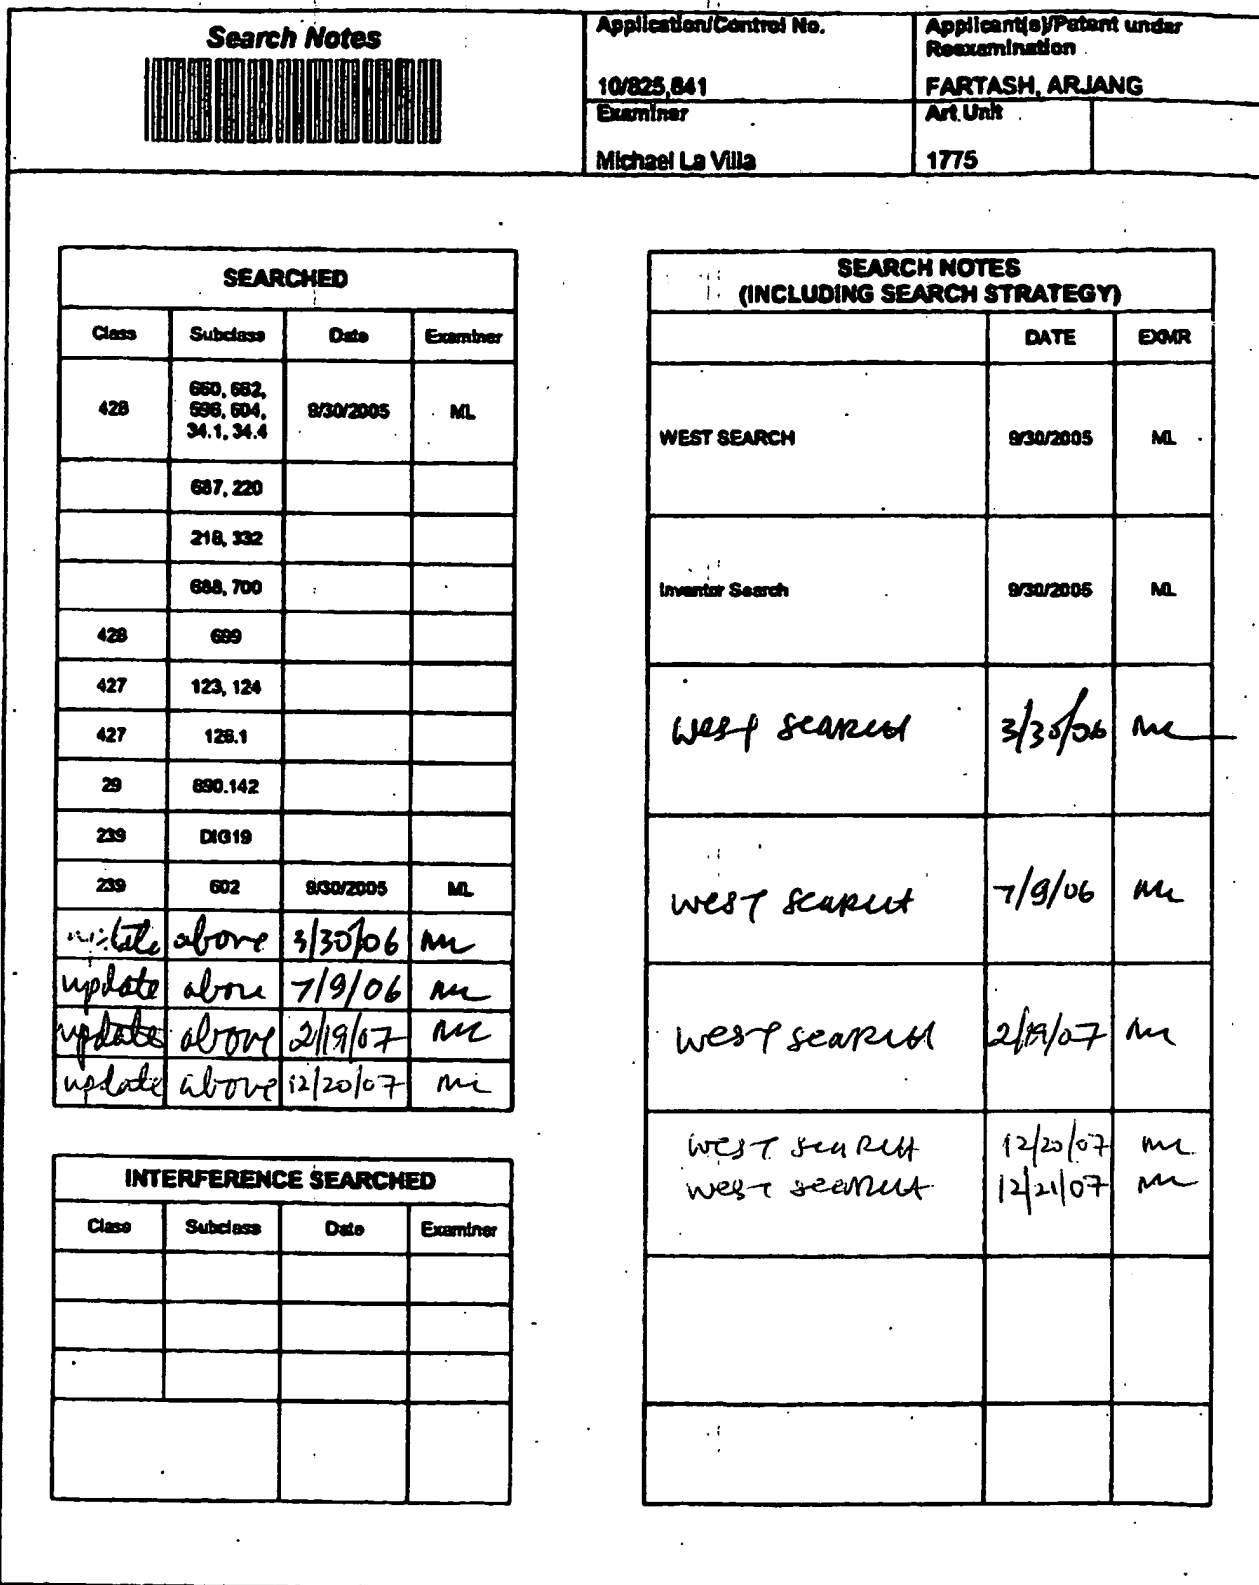 Search Notes
Application/Control No.
10/825,841
Applicant(s)/Patent under
Reexamination
FARTASH, ARJANG
Examiner
Michael La Villa
Art Unit
1775
SEARCHED
Class Subclass Date Examiner
428 660, 662, 596, 604, 34.1, 34.4 9/30/2005 ML
687, 220
218, 332
688, 700
428 699
427 123, 124
427 126.1
29 890.142
239 DIG19
239 602 9/30/2005 ML
above 3/30/06 ML
update above 7/9/06 ML
update above 2/19/07 ML
update above 12/20/07 ML
INTERFERENCE SEARCHED
Class Subclass Date Examiner
SEARCH NOTES
(INCLUDING SEARCH STRATEGY)
DATE EXMR
WEST SEARCH 9/30/2005 ML
Inventor Search 9/30/2005 ML
West Search 3/30/06 ML
West Search 7/9/06 ML
West Search 2/19/07 ML
West Search 12/20/07 ML
West Search 12/21/07 ML